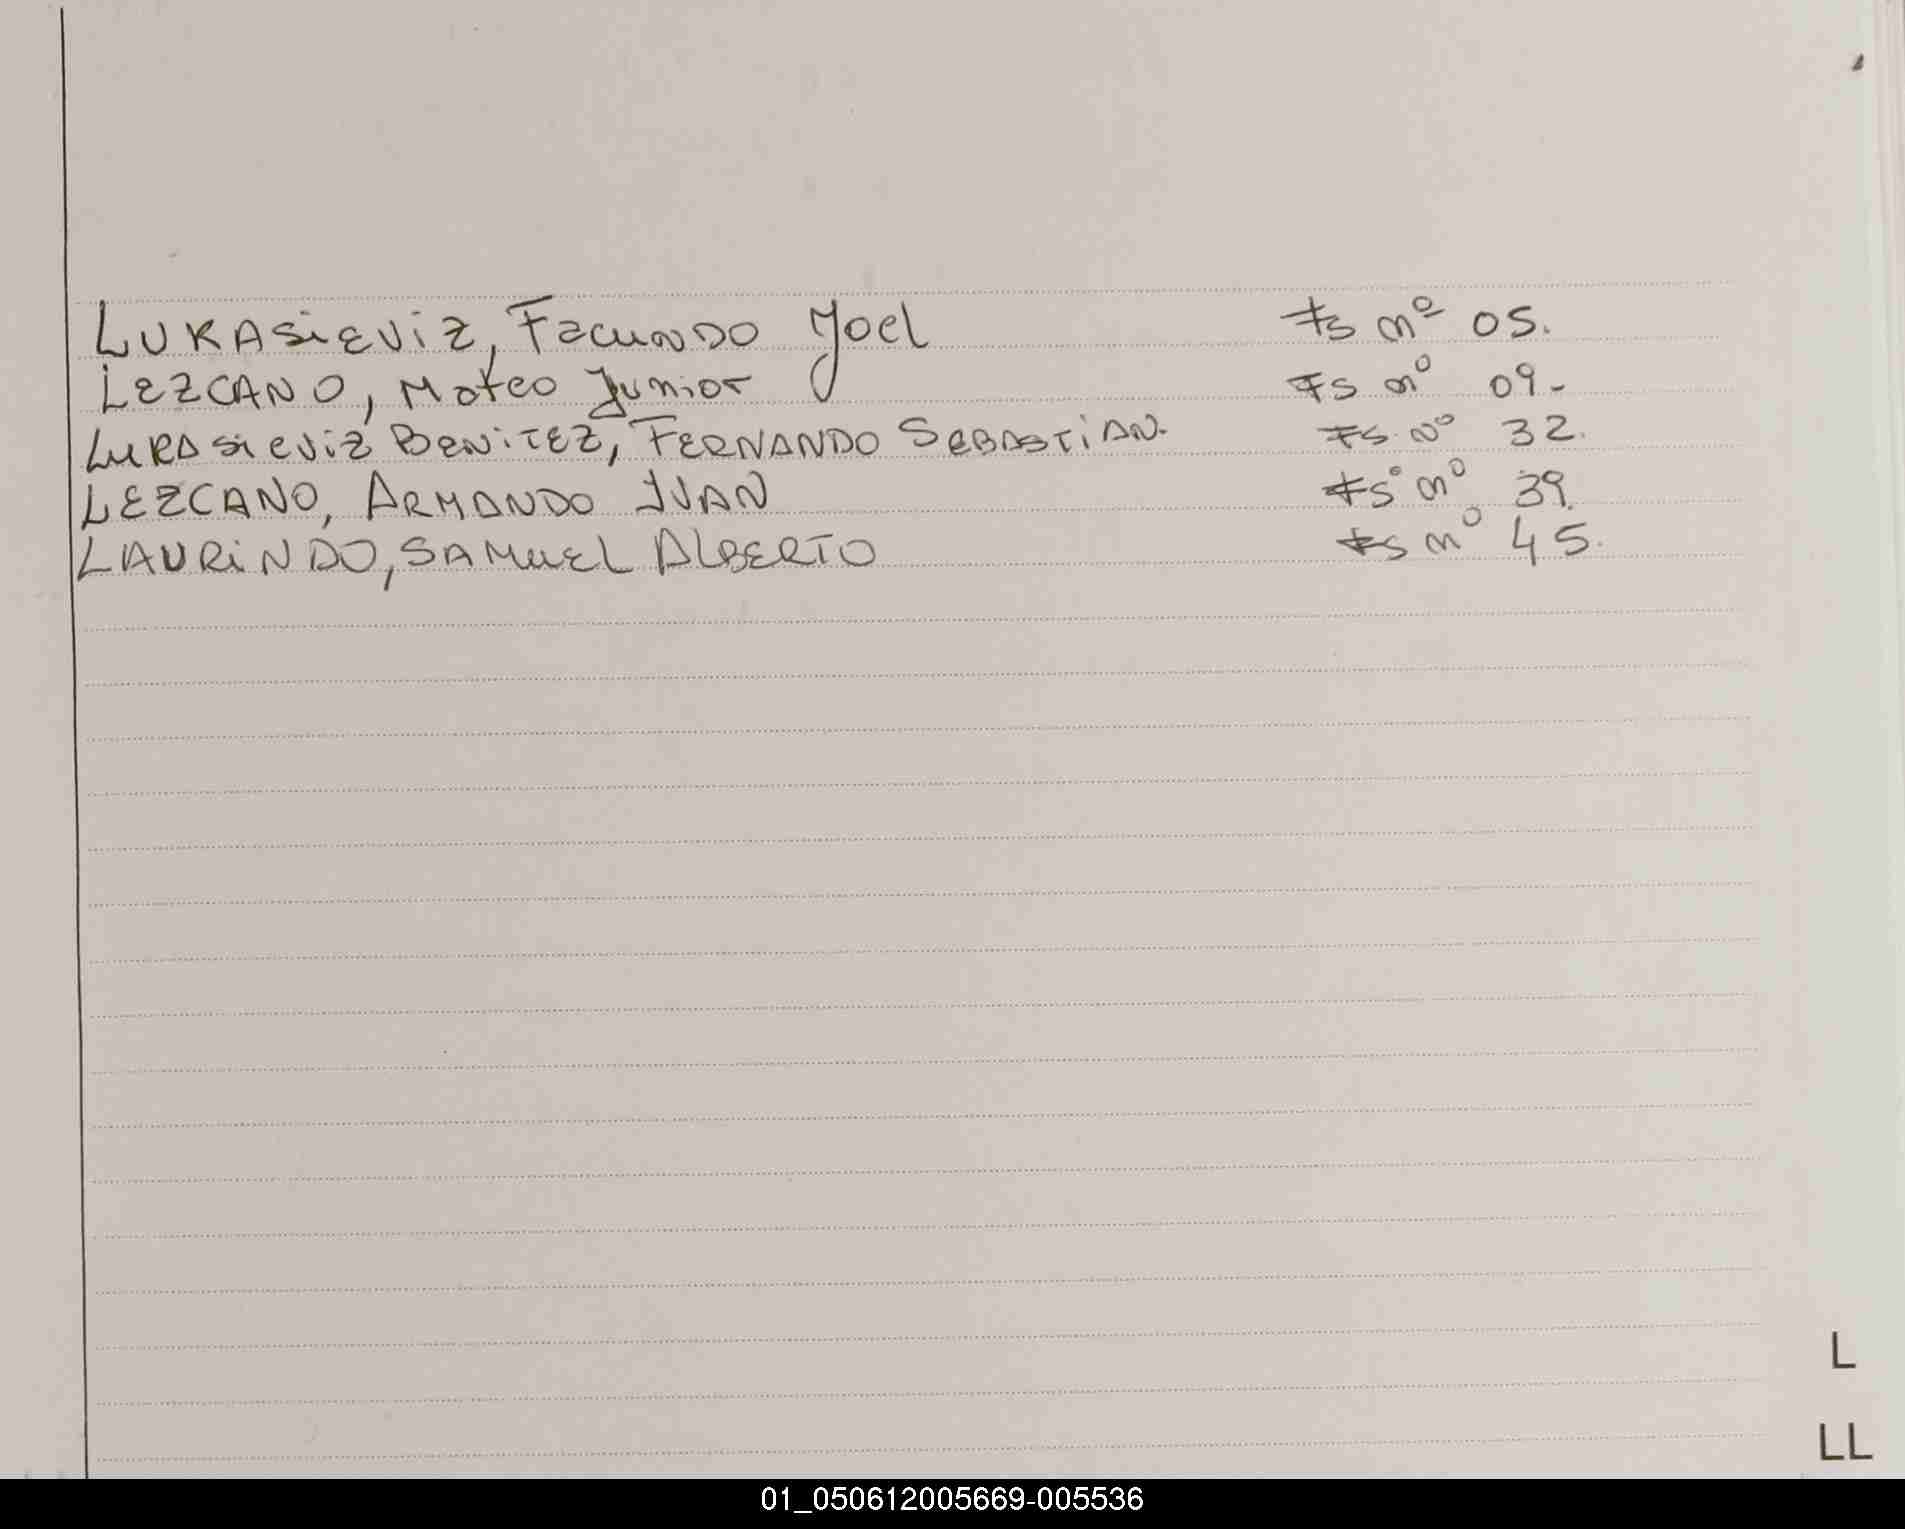 LUKASiEViz, FACUNDO Joel Fs nº 05.
LEZCANO, Mateo Junior Fs nº 09-
LUKASiEViz BENiTEZ, FERNANDO SEBASTiAN. Fs. Nº 32.
LEZCANO, ARMANDO IVAN Fsº nº 39.
LAURiNDO, SAMUEL ALBERTO Fs nº 45.
L
LL
01_050612005669-005536